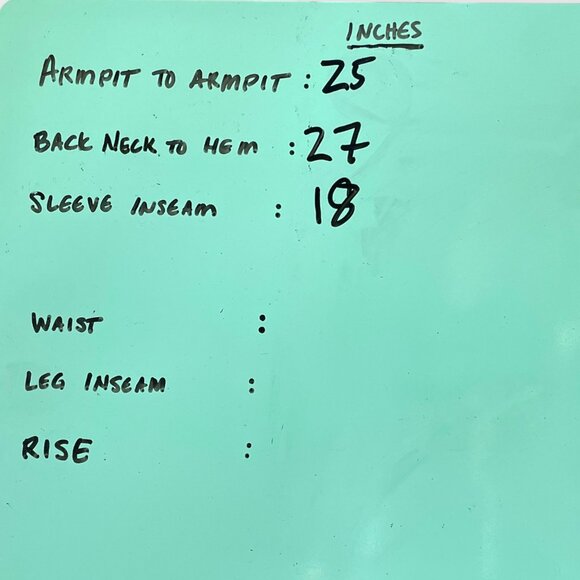 INCHES
ARMPIT TO ARMPIT : 25
BACK NECK TO HEM : 27
SLEEVE INSEAM : 18
WAIST :
LEG INSEAM :
RISE :